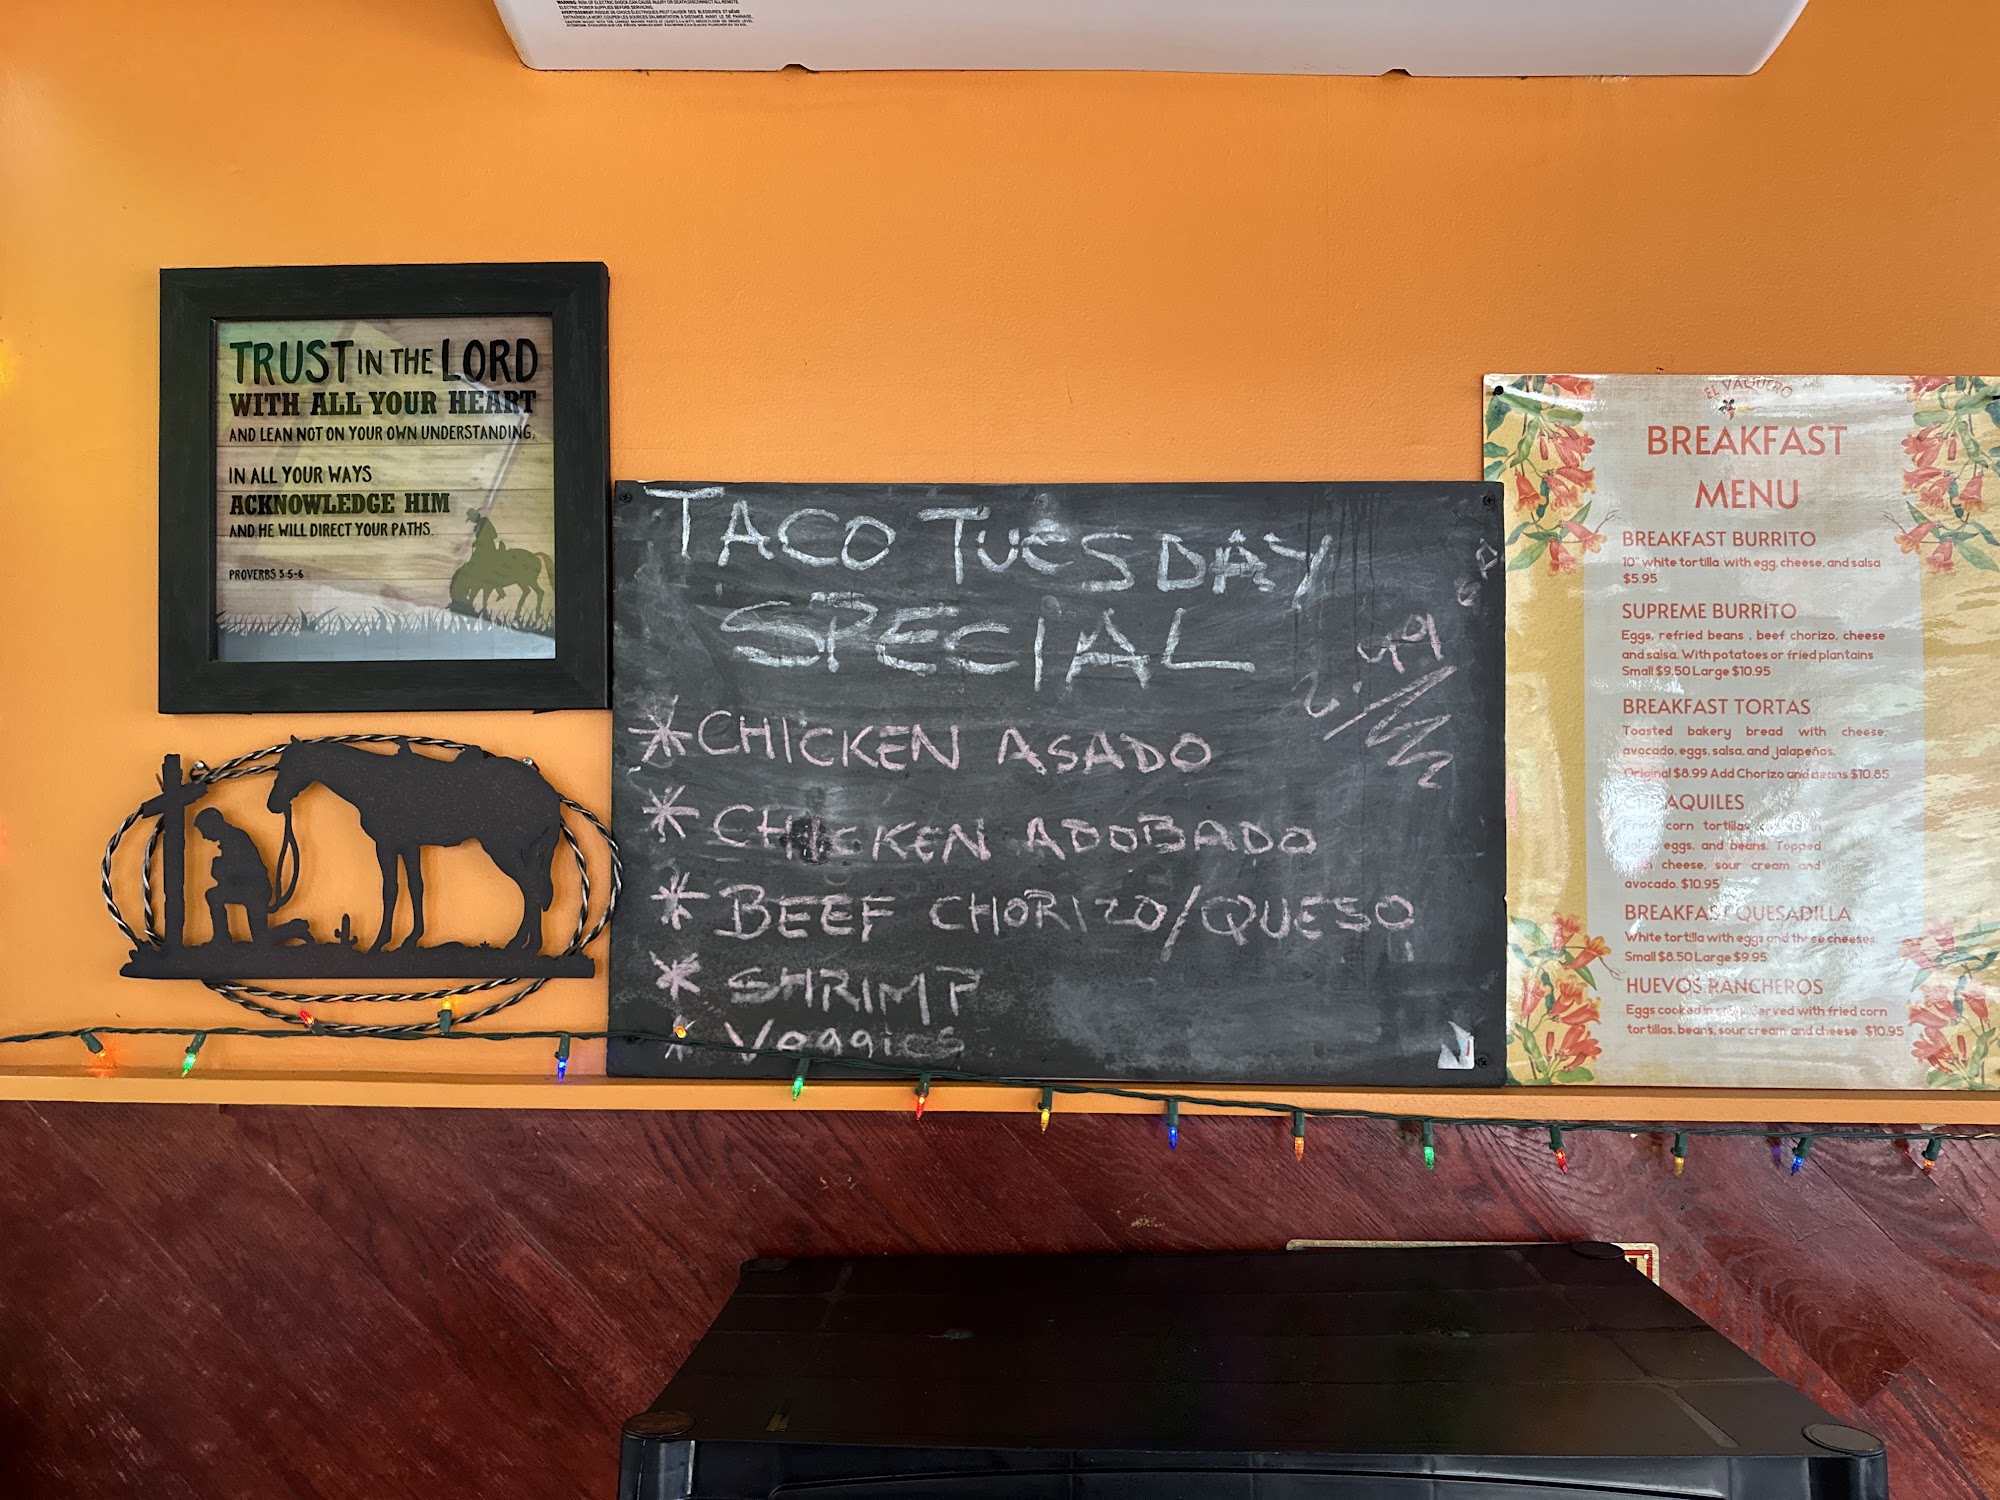 WARNING: RISK OF ELECTRIC SHOCK CAN CAUSE INJURY OR DEATH: DISCONNECT ALL REMOTE
ELECTRIC POWER SUPPLIES BEFORE SERVICING.
TRUST IN THE LORD
WITH ALL YOUR HEART
AND LEAN NOT ON YOUR OWN UNDERSTANDING;
IN ALL YOUR WAYS
ACKNOWLEDGE HIM
AND HE WILL DIRECT YOUR PATHS.
PROVERBS 3:5-6
TACO TUESDAY
SPECIAL
2.99
*CHICKEN ASADO
* CHICKEN ADOBADO
* BEEF CHORIZO/QUESO
* SHRIMP
* Veggies
EL VAQUERO
BREAKFAST
MENU
BREAKFAST BURRITO
10" white tortilla with egg, cheese, and salsa
$5.95
SUPREME BURRITO
Eggs, refried beans , beef chorizo, cheese
and salsa. With potatoes or fried plantains
Small $9.50 Large $10.95
BREAKFAST TORTAS
Toasted bakery bread with cheese,
avocado, eggs, salsa, and jalapeños.
Original $8.99 Add Chorizo and beans $10.85
corn tortillas in
eggs, and beans. Topped
cheese, sour cream and
avocado. $10.95
BREAKFAST QUESADILLA
White tortilla with eggs and three cheeses.
Small $8.50 Large $9.95
HUEVOS RANCHEROS
Eggs cooked in served with fried corn
tortillas, beans, sour cream and cheese $10.95